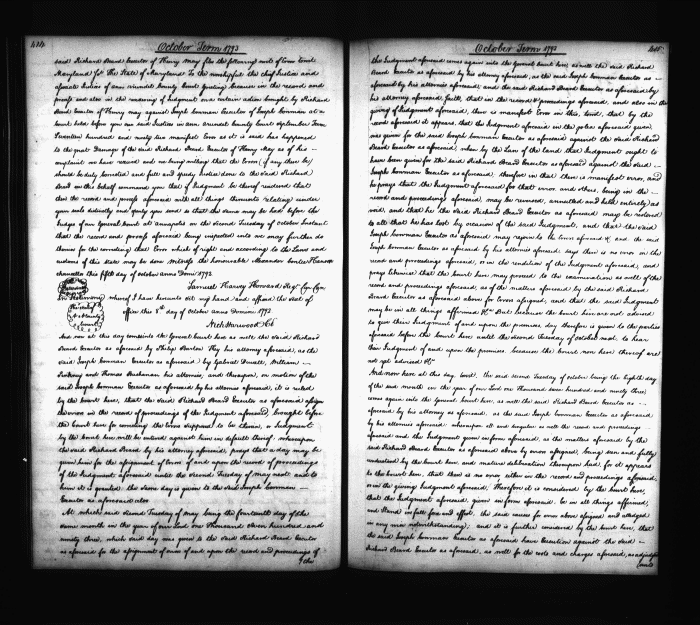 424
October Term 1793
said Richard Beard Executor of Henry May files the following writ of Error to wit
Maryland Sct The State of Maryland To the worshipful the chief Justice and
associate Justices of Ann Arundel County Court greeting because in the record and
process and also in the rendering of Judgment on a certain action brought by Richard
Beard Executor of Henry May against Joseph Cowman Executor of Joseph Cowman at a
Court held before you our said Justices in Ann Arundel County Court September Term
Seventeen hundred and ninety two manifest Error as it is said has happened
to the great Damage of the said Richard Beard Executor of Henry May as of his
complaint we have received and we being willing that the Error (if any there be)
should be duly corrected and full and speedy Justice done to the said Richard
Beard in this behalf command you that if Judgment be thereof rendered that
then the record and process aforesaid with all things thereunto relating under
your seals distinctly and openly you send so that the same may be had before the
Judges of our General Court at Annapolis on the second Tuesday of October Instant
that the record and process aforesaid being inspected we may further do
thereon for the correcting that Error which of right and according to the Laws and
customs of this State may be done Witness the honourable Alexander Contee Hanson
chancellor this fifth day of October Anno Domini 1792
Samuel Harvey Howard Regr Cur Can
In Testimony whereof I have hereunto set my hand and affixed the seal of
office this 8th day of October Anno Domini 1792
Nich Harwood Clk
And now at this day cometh into the General Court here as well the said Richard
Beard Executor as aforesaid by Philip Barton Key his attorney aforesaid, as the
said Joseph Cowman Executor as aforesaid by Gabriel Duvall, William
and Thomas Buchanan his attornies, and thereupon, on motion of the
said Joseph Cowman Executor as aforesaid by his attornies aforesaid, it is ruled
by the Court here, that the said Richard Beard Executor as aforesaid assign
the error in the record of proceedings of the Judgment aforesaid, brought before
the Court here for correcting the Error supposed to be therein, or Judgment
by the Court here will be entered against him in default thereof. whereupon
the said Richard Beard by his attorney aforesaid, prays that a day may be
given him for the assignment of Error of and upon the record of proceedings
of the Judgment aforesaid until the second Tuesday of May next and to
him it is granted. the same day is given to the said Joseph Cowman
Executor as aforesaid also
At which said second Tuesday of May being the fourteenth day of the
same month in the year of our Lord one thousand seven hundred and
ninety three, which said day was given to the said Richard Beard Executor
as aforesaid for the assignment of error of and upon the record and proceedings of
the
October Term 1793
425
the Judgment aforesaid comes again into the General Court here, as well the said Richard
Beard Executor as aforesaid by his attorney aforesaid, as the said Joseph Cowman Executor as
aforesaid by his attornies aforesaid; and the said Richard Beard Executor as aforesaid by
his attorney aforesaid, saith, that in the record & proceedings aforesaid, and also in the
giving of Judgment aforesaid, there is manifest Error in this, towit, that by the
record aforesaid it appears, that the Judgment aforesaid in the plea aforesaid given,
was given for the said Joseph Cowman Executor as aforesaid against the said Richard
Beard Executor as aforesaid, when by the Law of the Land that Judgment ought to
have been given for the said Richard Beard Executor as aforesaid against the said
Joseph Cowman Executor as aforesaid; therefore in that there is manifest error, and
he prays that the Judgment aforesaid for that error and others, being in the
record and proceedings aforesaid, may be reversed, annulled and held entirely as
void, and that he the said Richard Beard Executor as aforesaid may be restored
to all that he has lost by occasion of the said Judgment, and that the said
Joseph Cowman Executor as aforesaid may rejoin to the Errors aforesaid &c and the said
Joseph Cowman Executor as aforesaid by his attornies aforesaid, says there is no error in the
record and proceedings aforesaid, or in the rendition of the Judgment aforesaid, and
prays likewise that the Court here may proceed to the examination as well of the
record and proceedings aforesaid, as of the matters aforesaid by the said Richard
Beard Executor as aforesaid above for Errors assigned, and that the said Judgment
may be in all things affirmed &c But because the Court here are not advised
to give their Judgment of and upon the premises, day therefore is given to the parties
aforesaid before the Court here, until the second Tuesday of October next, to hear
their Judgment of and upon the premises, because the Court now here thereof are
not yet advised &c
And now here at this day, towit, the said second Tuesday of October being the eighth day
of the said month in the year of our Lord one thousand seven hundred and ninety three,
comes again into the General Court here, as well the said Richard Beard Executor as
aforesaid by his attorney as aforesaid, as the said Joseph Cowman Executor as aforesaid
by his attornies aforesaid. whereupon all and singular as well the record and proceedings
aforesaid and the Judgment given in form aforesaid, as the matters aforesaid by the
said Richard Beard Executor as aforesaid above by him assigned, being seen and fully
understood by the Court here, and mature deliberation thereupon had, for it appears
to the Court here, that there is no error either in the record and proceedings aforesaid,
or in the giving Judgment aforesaid; Therefore it is considered by the Court here
that the Judgment aforesaid, given in form aforesaid be in all things affirmed,
and stand in full force and effect, the said causes for error above assigned and alledged
in any wise notwithstanding; and it is further considered by the Court here, that
the said Joseph Cowman Executor as aforesaid have Execution against the said
Richard Beard Executor as aforesaid, as well for the costs and charges aforesaid, as adjudged